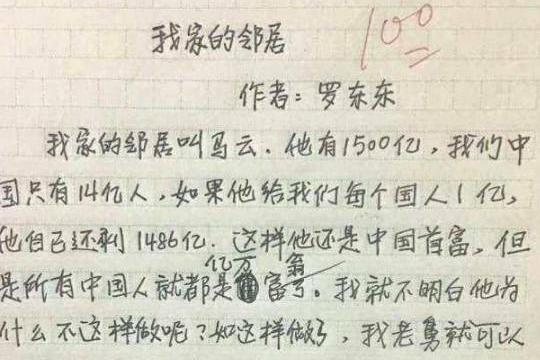 我家的邻居
100
作者：罗东东
我家的邻居叫马云．他有1500亿，我们中
国只有14亿人，如果他给我们每个国人1亿，
他自已还剩1486亿．这样他还是中国首富，但
是所有中国人就都是亿万富翁了。我就不明白他为
什么不这样做呢？如这样做了，我老舅就可以